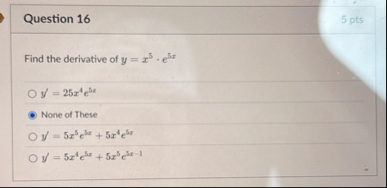 Question 16
5 pts
Find the derivative of y = x⁵ · e⁵ˣ
y′ = 25x⁴e⁵ˣ
None of These
y′ = 5x⁵e⁵ˣ + 5x⁴e⁵ˣ
y′ = 5x⁴e⁵ˣ + 5x⁵e⁵ˣ⁻¹